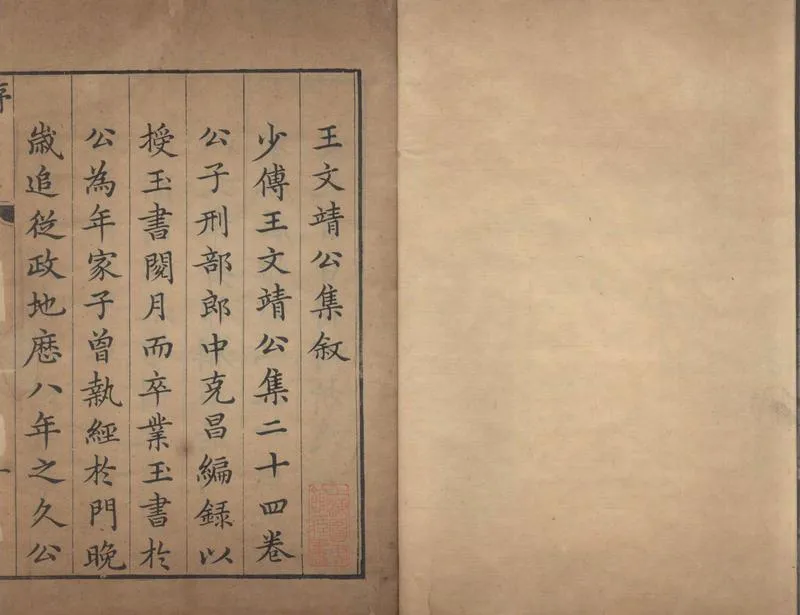 王文靖公集叙
少傅王文靖公集二十四卷
公子刑部郎中克昌編録以
授玉書閱月而卒業玉書於
公為年家子曾執經於門晚
歲追從政地歷八年之久公
序
一